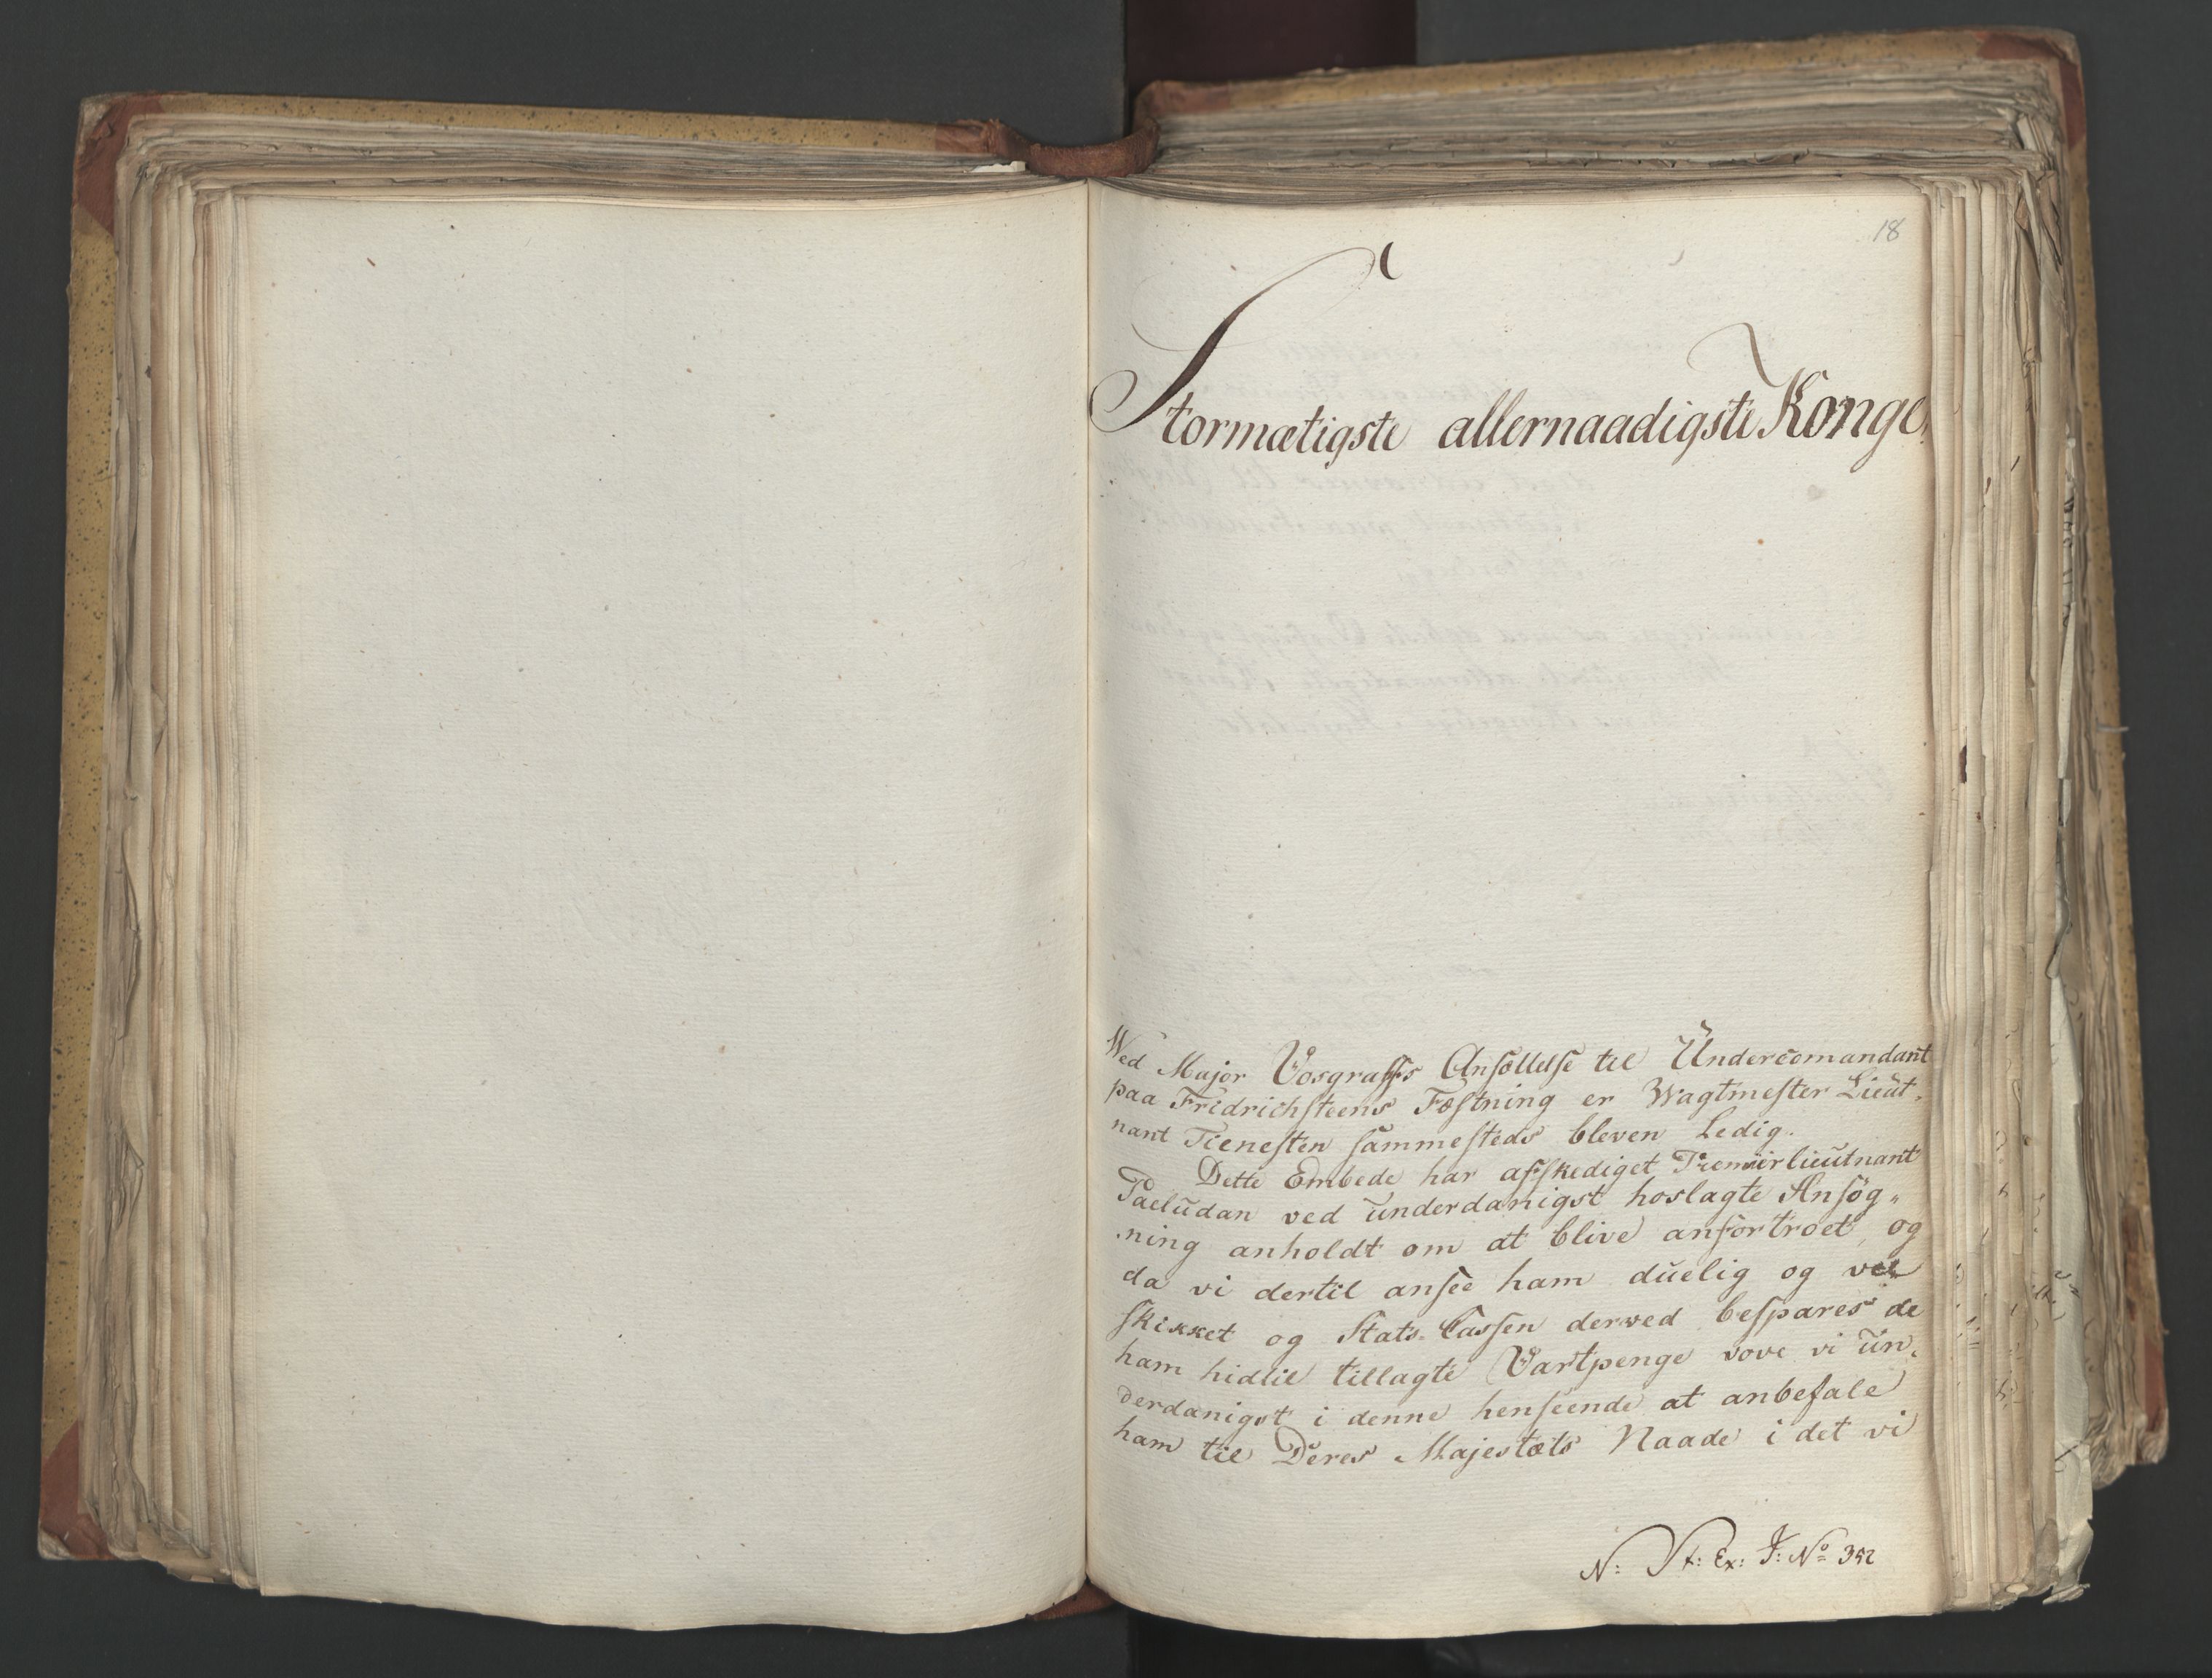 18
Stormætigste allernaadigste Konge!
Wed Major Vosgraffs Ansættelse til Undercomandant
paa Fridrichsteens Fæstning er Wagtmester Lieut-
nant Tienesten sammesteds bleven Ledig.
Dette Embede har afskediget Premierlieutnant
Paludan ved underdanigst hoslagte Ansøg-
ning anholdt om at blive anfortroet, og
da vi dertil ansee ham duelig og vel
skikket og Stats-Cassen derved bespares de
ham hidtil tillagte Vartpenge vove vi un-
derdanigst i denne henseende at anbefale
ham til Deres Majestæts Naade i det vi
N: St: Ex: J: No 352